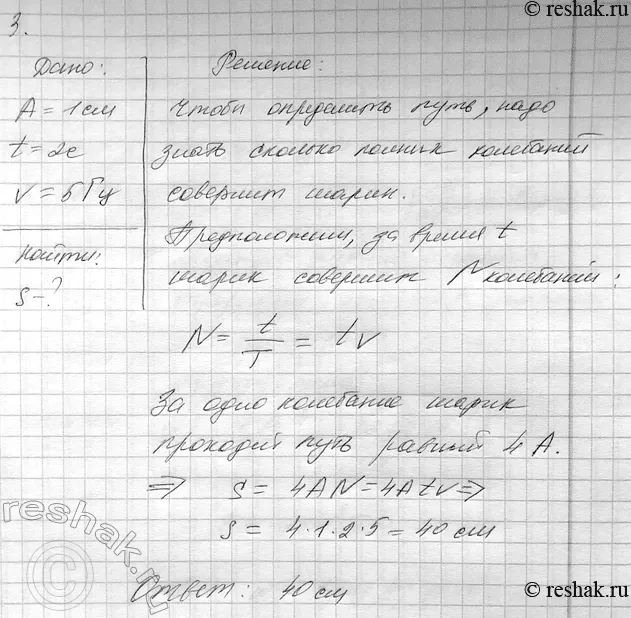 © reshak.ru
3.
Дано:
A = 1 см
t = 2с
ν = 5 Гц
Найти:
S - ?
Решение:
Чтобы определить путь, надо
знать сколько полных колебаний
совершит шарик.
Предположим, за время t
шарик совершит N колебаний:
N = t/T = tν
За одно колебание шарик
проходит путь равный 4A.
=> S = 4AN = 4Atν =>
S = 4·1·2·5 = 40 см
Ответ: 40 см
reshak.ru
©
© reshak.ru